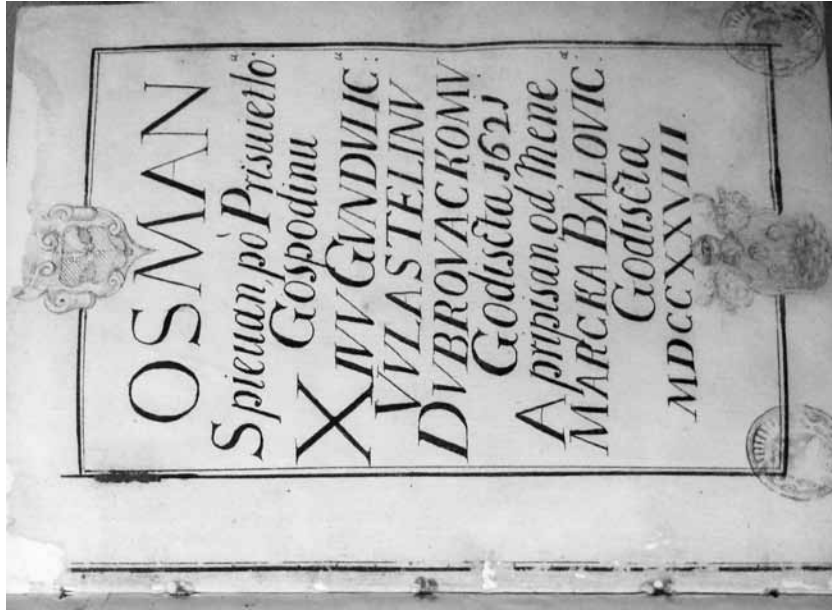 OSMAN
Spieuan, pò Prisuietlo:ᵘ
Gospodinu
XIVV GVNDVLIC:ᵘ
VVLASTELINV
DVBROVACKOMV
Godiscta 1621
A pripisan od, mene
MARCKA BALOVIC:ᵃ
Godiscta
MDCCXXVIII